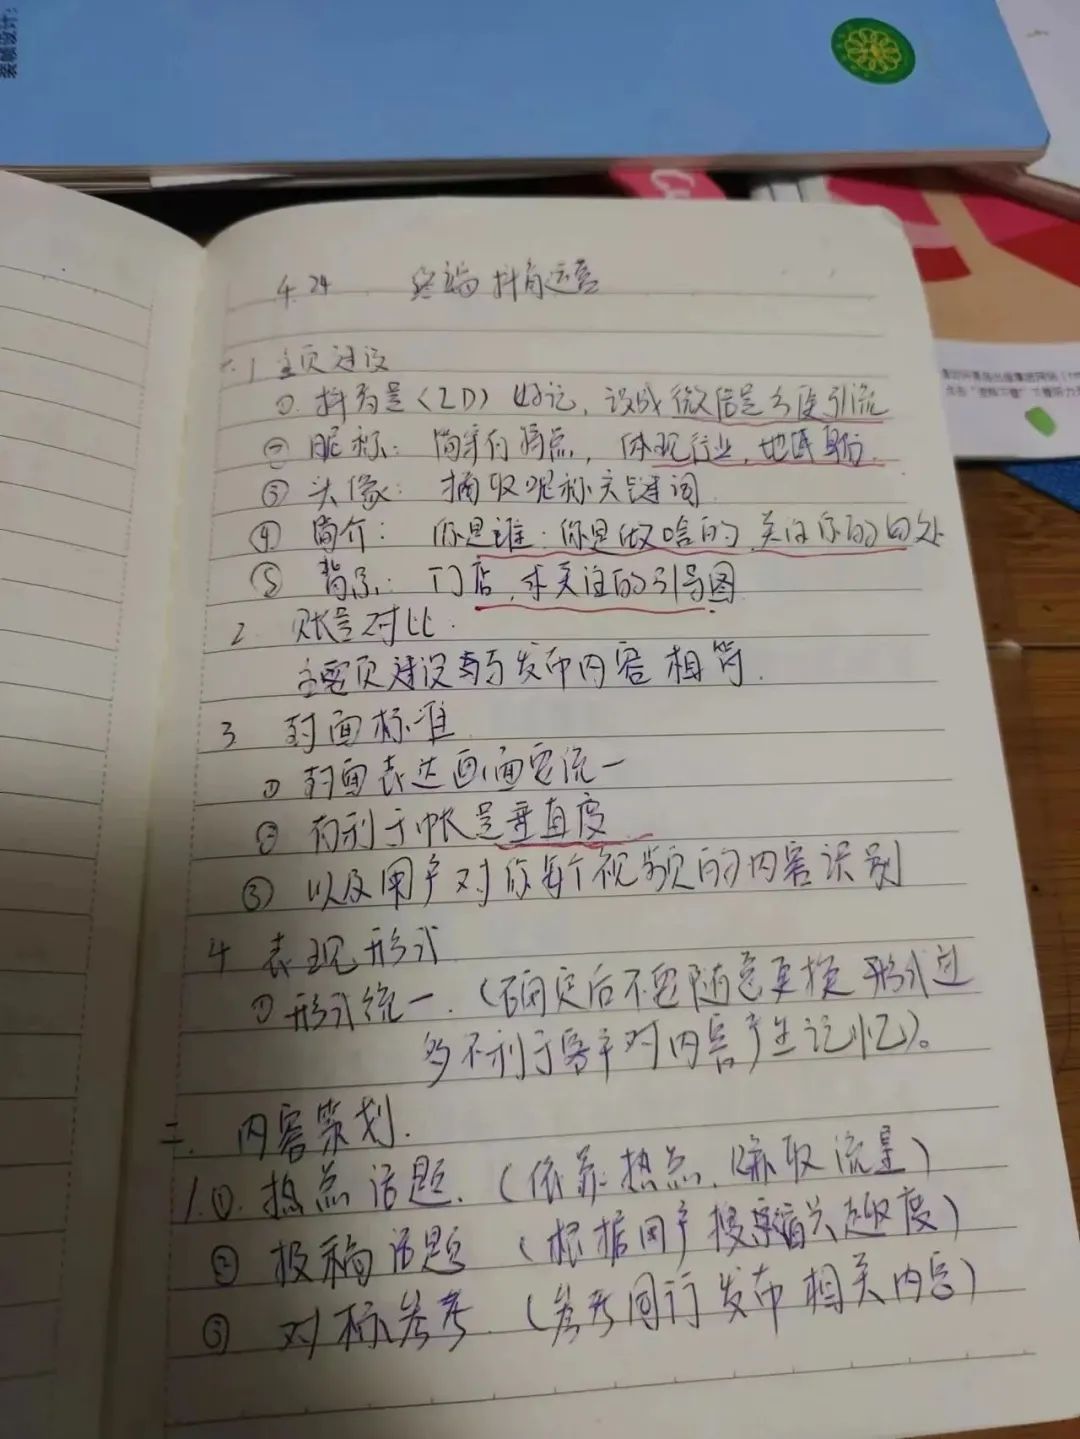 装帧设计:
4.24 终端抖音运营
一.1 主页建设
①. 抖音号（ID）好记，设成微信号方便引流
② 昵称: 简单有特点, 体现行业,
③ 头像: 摘取昵称关键词
④ 简介: 你是谁.你是做啥的.关注你的
⑤ 背景: 门店,求关注的引导图
2 账号对比.
主页建设与发布内容相符.
3 封面标准
① 封面表达画面要统一
② 有利于帐号垂直度
③ 以及用户对你每个视频的内容识别
4 表现形式
① 形式统一.（确定后不要随意更换 形式过
多不利于客户对内容产生记忆）。
二. 内容策划.
1.①. 热点话题.（依靠热点, 赚取流量）
② 投稿话题（根据用户搜索兴趣度）
③ 对标参考.（参考同行发布相关内容）